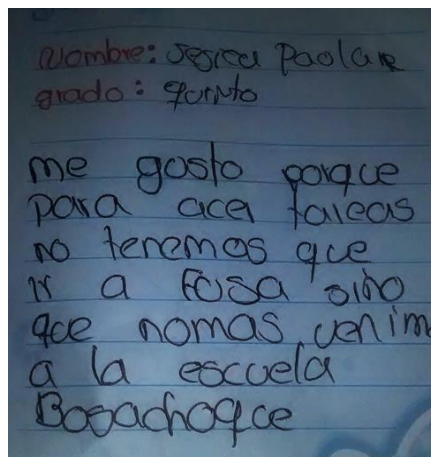 Nombre: Jesica Paola R
grado: quinto
me gosto porque
para acer tareas
no tenemos que
ir a Fusa sino
que nomas venim
a la escuela
Bosachoque